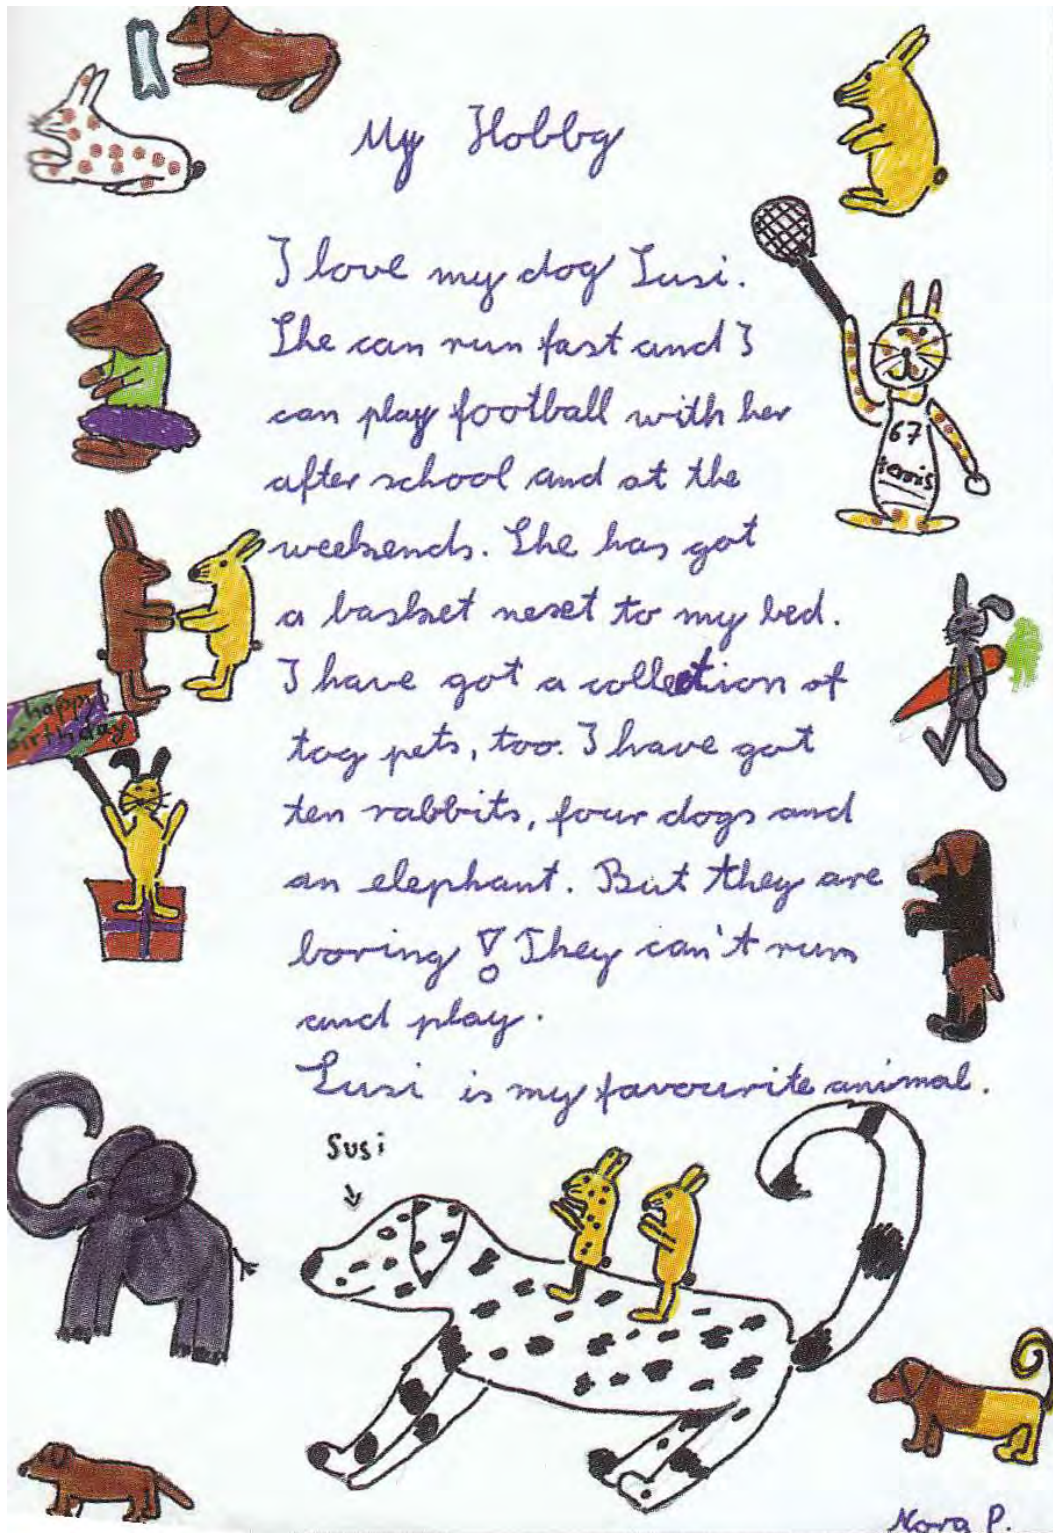 My Hobby
I love my dog Susi.
She can run fast and I
can play football with her
after school and at the
weekends. She has got
a basket next to my bed.
I have got a collection of
toy pets, too. I have got
ten rabbits, four dogs and
an elephant. But they are
boring! They can't run
and play.
Susi is my favourite animal.
67
tennis
happy
birthday
Susi
Nora P.